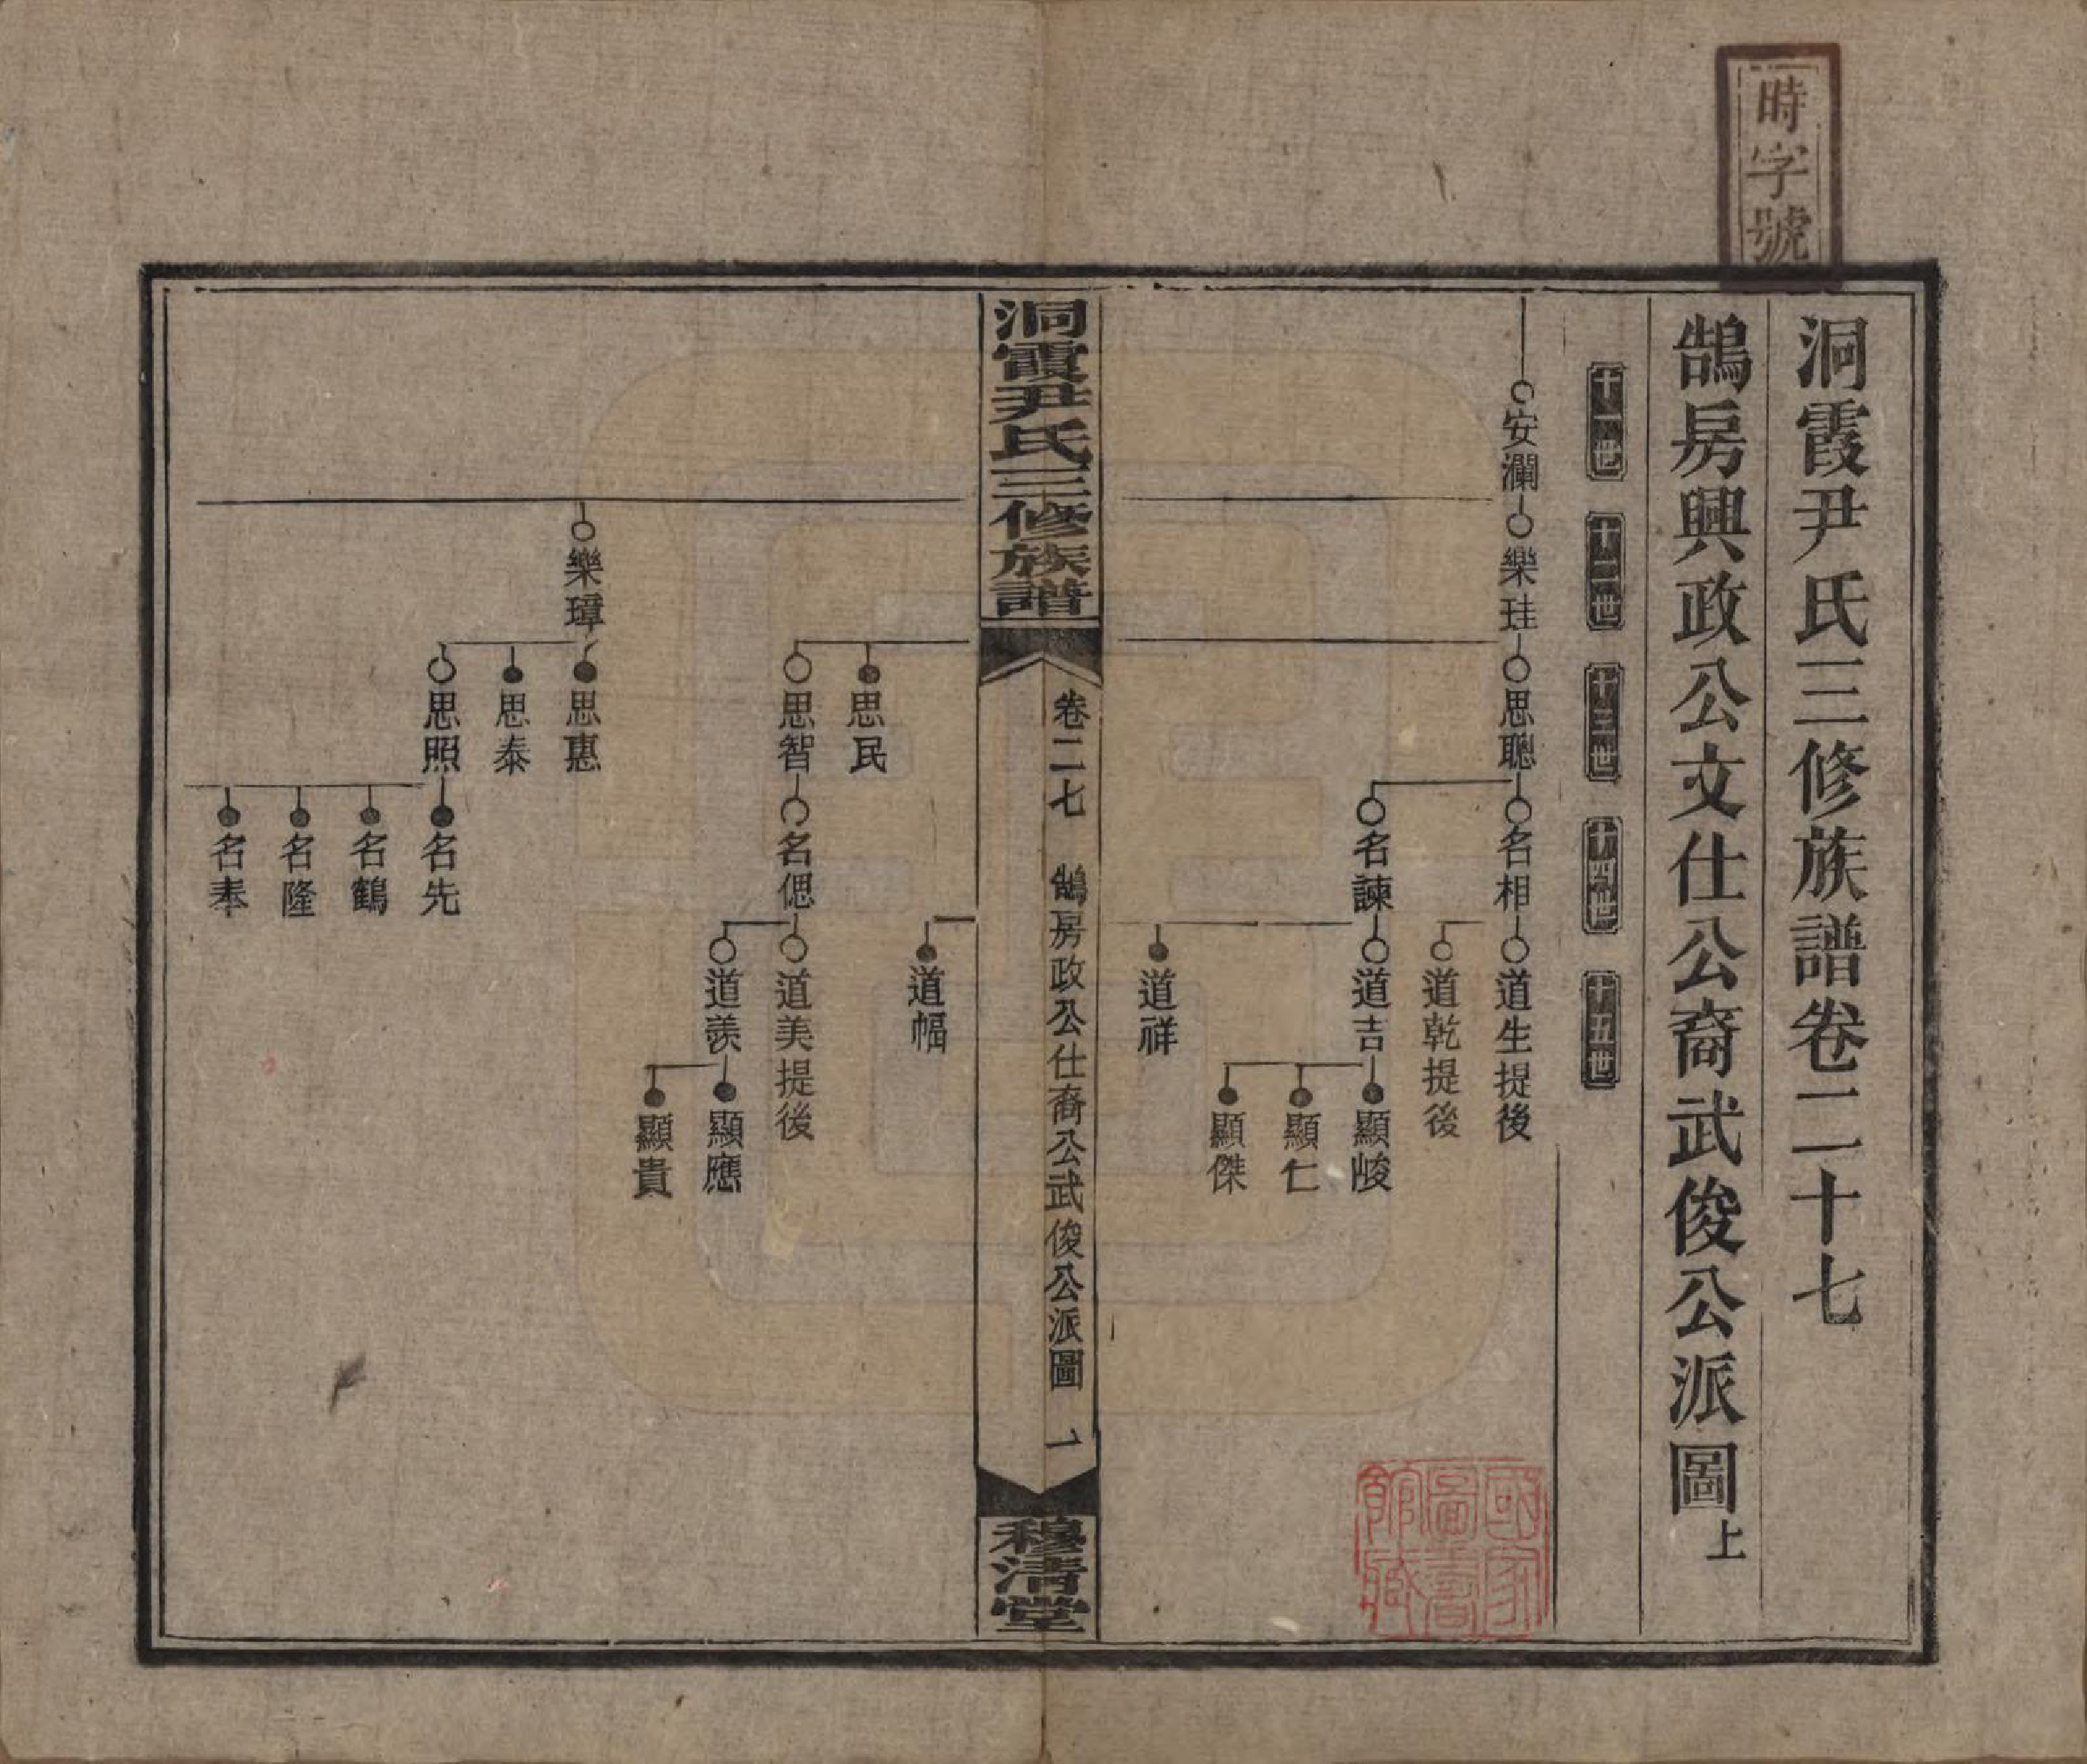 時字號
洞霞尹氏三修族譜卷二十七
鵠房興政公文仕公裔武俊公派圖上
十一世
十二世
十三世
十四世
十五世
安瀾
樂珪
思聰
名相
道生提後
道乾提後
名諫
道吉
顯峻
顯仁
顯傑
道祥
洞霞尹氏三修族譜
卷二七
鵠房政公仕裔公武俊公派圖
一
穆清堂
道幅
思民
思智
名偲
道美提後
道羨
顯應
顯貴
樂璋
思惠
思泰
思照
名先
名鶴
名隆
名奉
國家圖書館藏